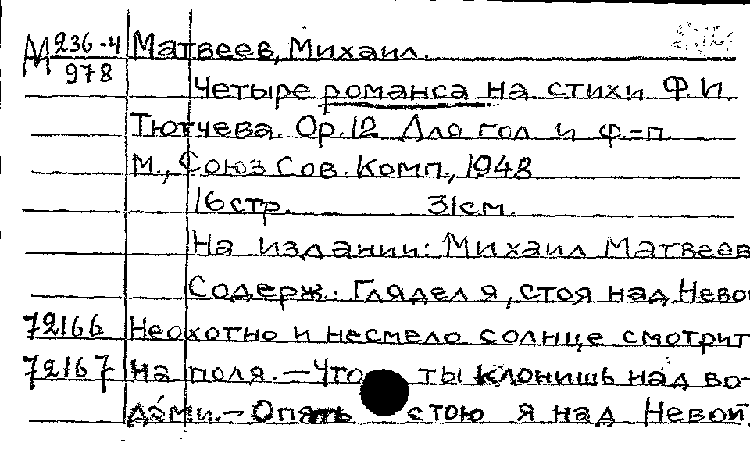 М 236-4 Матвеев, Михаил.
978
Четыре романса на стихи Ф.И.
Тютчева. Op.12 Для гол и ф.-п.
М., Союз Сов. Комп., 1948
16 стр. 31 см.
На издании: Михаил Матвеев
Содерж.: Глядел я, стоя над Невой
72166 Неохотно и несмело солнце смотрит
72167 на поля. — Что ты клонишь над во-
дами. — Опять стою я над Невой.